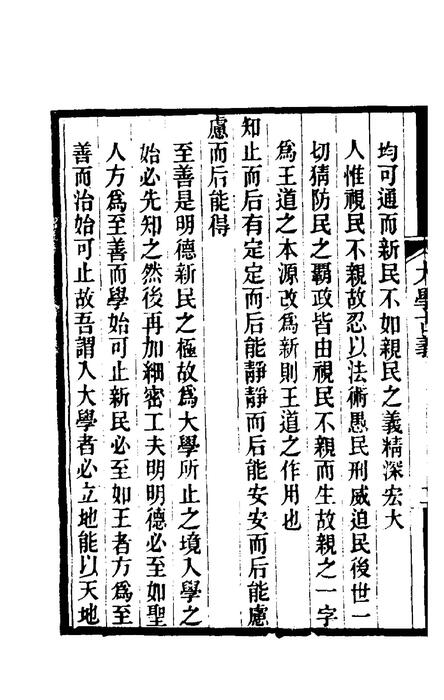 大學古義
均可通而新民不如親民之義精深宏大
人惟視民不親故忍以法術愚民刑威迫民後世一
切猜防民之霸政皆由視民不親而生故親之一字
為王道之本源改為新則王道之作用也
知止而后有定定而后能靜靜而后能安安而后能慮
慮而后能得
至善是明德新民之極故為大學所止之境入學之
始必先知之然後再加細密工夫明明德必至如聖
人方為至善而學始可止新民必至如王者方為至
善而治始可止故吾謂入大學者必立地能以天地